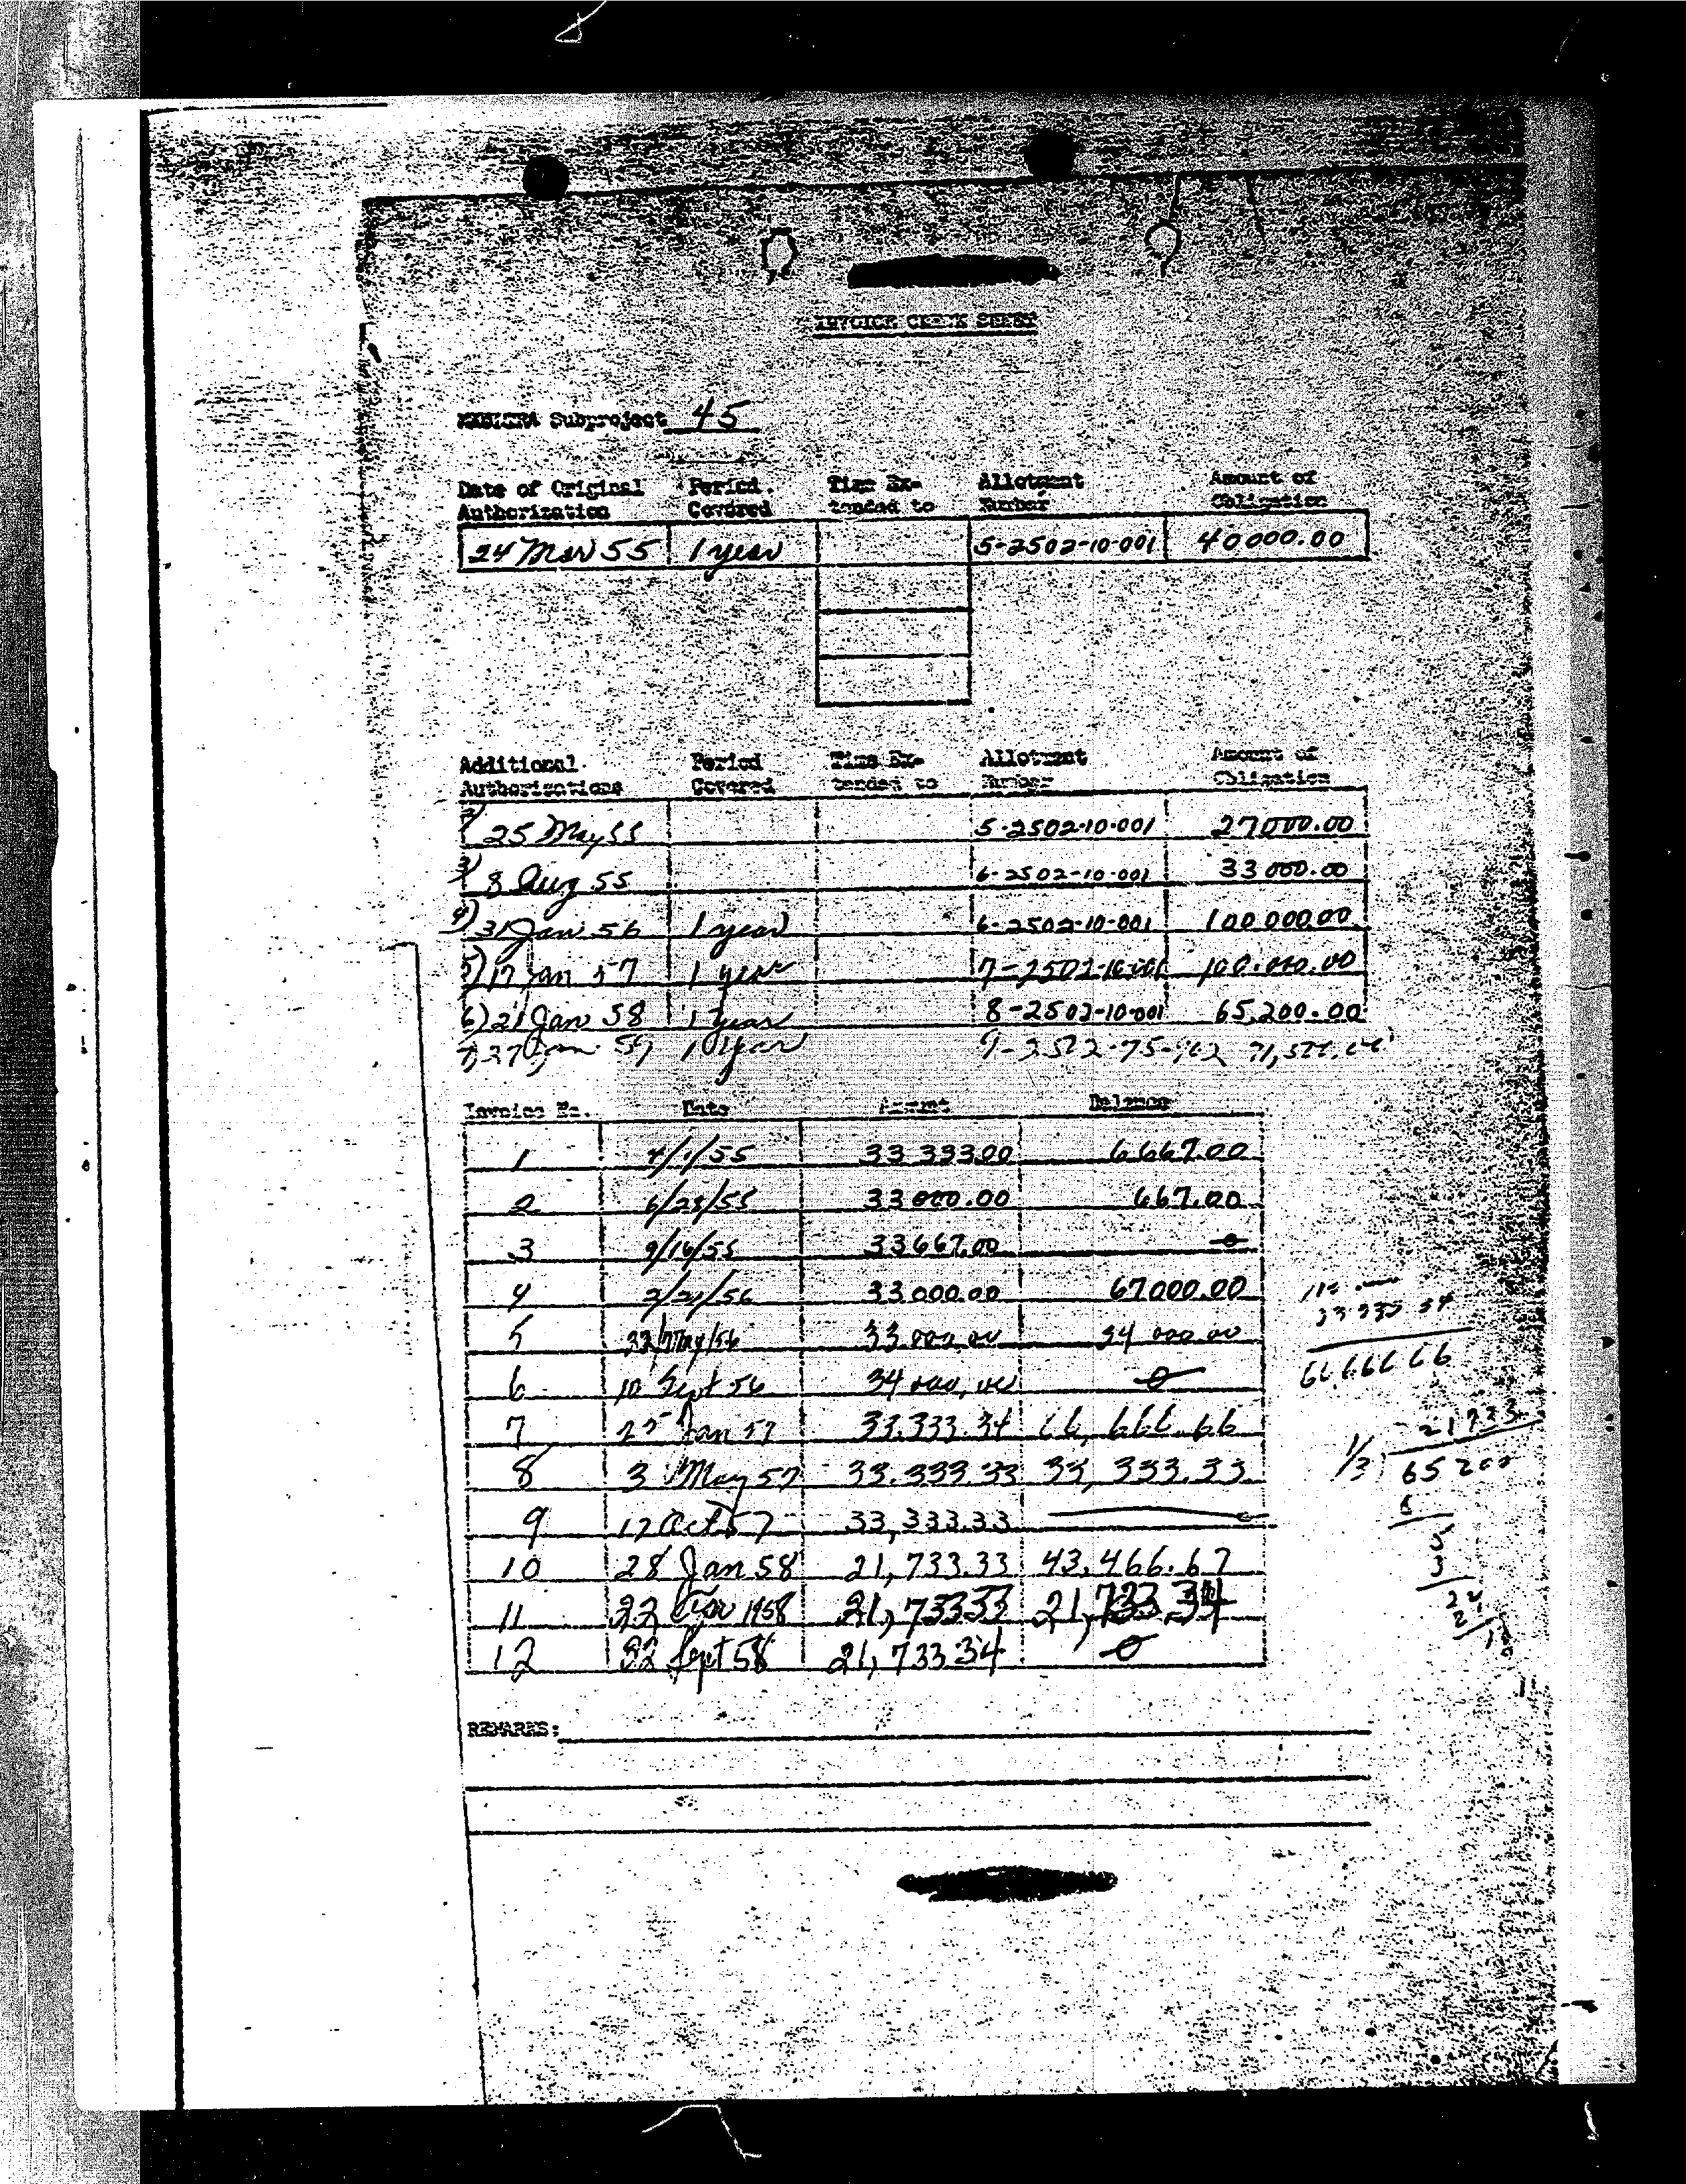 INVOICE CHECK SHEET
MKULTRA Subproject 45
Date of Original Period Time Ex- Allotment Amount of
Authorization Covered tended to Number Obligation
24 Mar 55 1 year 5-2502-10-001 40000.00
Additional Period Time Ex- Allotment Amount of
Authorizations Covered tended to Number Obligation
2) 25 May 55 5-2502-10-001 27000.00
3) 8 Aug 55 6-2502-10-001 33000.00
4) 31 Jan 56 1 year 6-2502-10-001 100 000.00
5) 17 Jan 57 1 year 7-2502-10-001 100.000.00
6) 21 Jan 58 1 year 8-2502-10-001 65,200.00
1 year
Invoice No. Date Amount Balance
1 4/1/55 33 333.00 6667.00
2 6/28/55 33000.00 667.00
3 9/16/55 33667.00 0
4 2/21/56 33000.00 67000.00
33 333 34
5 22/May/56 33.000.00 34 000.00
66 666 66
6 10 Sept 56 34 000,00 0
7 25 Jan 57 33.333.34 66,666.66
21733
8 3 May 57 33.333.33 33,333.33
1/3 65 200
9 17 Oct 57 33,333.33
10 28 Jan 58 21,733.33 43,466.67
11 22 1958 21,733 33 21,733 34
12 22 Sept 58 21,733 34 0
REMARKS: